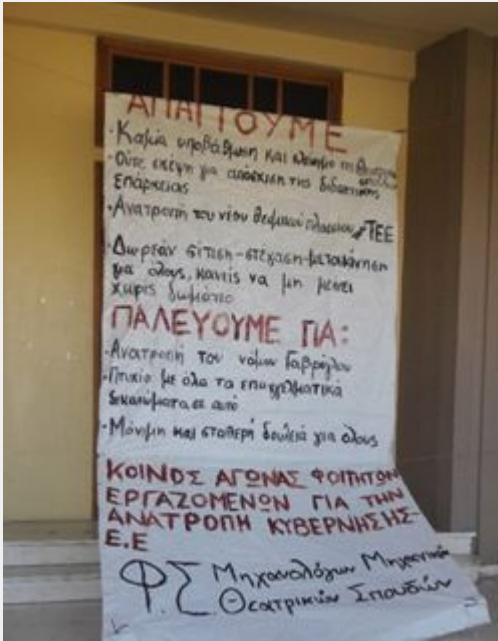 ΑΠΑΙΤΟΥΜΕ
·Καμία υποβάθμιση και κλείσιμο της
·Ούτε σκέψη για απόσχιση της διδακτικής
επάρκειας
·Ανατροπή του νέου θεσμικού πλαισίου ΤΕΕ
·Δωρεάν σίτιση-στέγαση-μετακίνηση
για όλους, κανείς να μη μείνει
χωρίς δωμάτιο
ΠΑΛΕΥΟΥΜΕ ΓΙΑ:
·Ανατροπή του νόμου Γαβρόγλου
·Πτυχίο με όλα τα επαγγελματικά
δικαιώματα σε αυτό
·Μόνιμη και σταθερή δουλειά για όλους
ΚΟΙΝΟΣ ΑΓΩΝΑΣ ΦΟΙΤΗΤΩΝ
ΕΡΓΑΖΟΜΕΝΩΝ ΓΙΑ ΤΗΝ
ΑΝΑΤΡΟΠΗ ΚΥΒΕΡΝΗΣΗΣ-
Ε.Ε
Φ.Σ Μηχανολόγων Μηχανικών
Θεατρικών Σπουδών